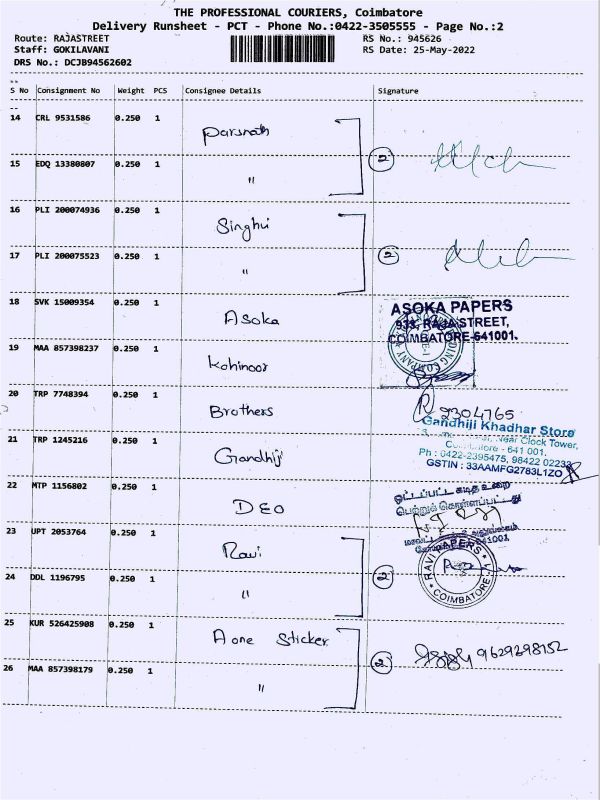 THE PROFESSIONAL COURIERS, Coimbatore
Delivery Runsheet - PCT - Phone No.:0422-3505555 - Page No.:2
Route: RAJASTREET RS No.: 945626
Staff: GOKILAVANI RS Date: 25-May-2022
DRS No.: DCJB94562602
S No Consignment No Weight PCS Consignee Details Signature
14 CRL 9531586 0.250 1 Parsnath
15 EDQ 13380807 0.250 1 "
2
16 PLI 200074936 0.250 1 Singhvi
17 PLI 200075523 0.250 1 "
2
18 SVK 15009354 0.250 1 Asoka
ASOKA PAPERS
933, RAJA STREET,
COIMBATORE-641001.
19 MAA 857398237 0.250 1 Kohinoor
20 TRP 7748394 0.250 1 Brothers
9304765
21 TRP 1245216 0.250 1 Gandhiji
Gandhiji Khadhar Store
Near Clock Tower,
641 001.
Ph : 0422-2395475, 98422 02233
GSTIN : 33AAMFG2783L1ZO
22 MTP 1156802 0.250 1 DEO
ஒட்டப்பட்ட கடித உறை
பெற்றுக் கொள்ளப்பட்டது
641001
23 UPT 2053764 0.250 1 Ravi
24 DDL 1196795 0.250 1 "
2
RAVI PAPERS
COIMBATORE-1
25 KUR 526425908 0.250 1 A one Sticker
2 9629298152
26 MAA 857398179 0.250 1 "